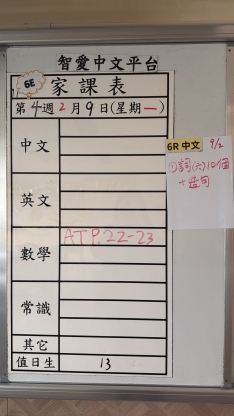 智愛中文平台
6E
家課表
第4週2月9日(星期一)
中文
英文
數學
ATP.22-23
常識
其它
值日生 13
6R 中文 9/2
①詞(六)10個
+造句